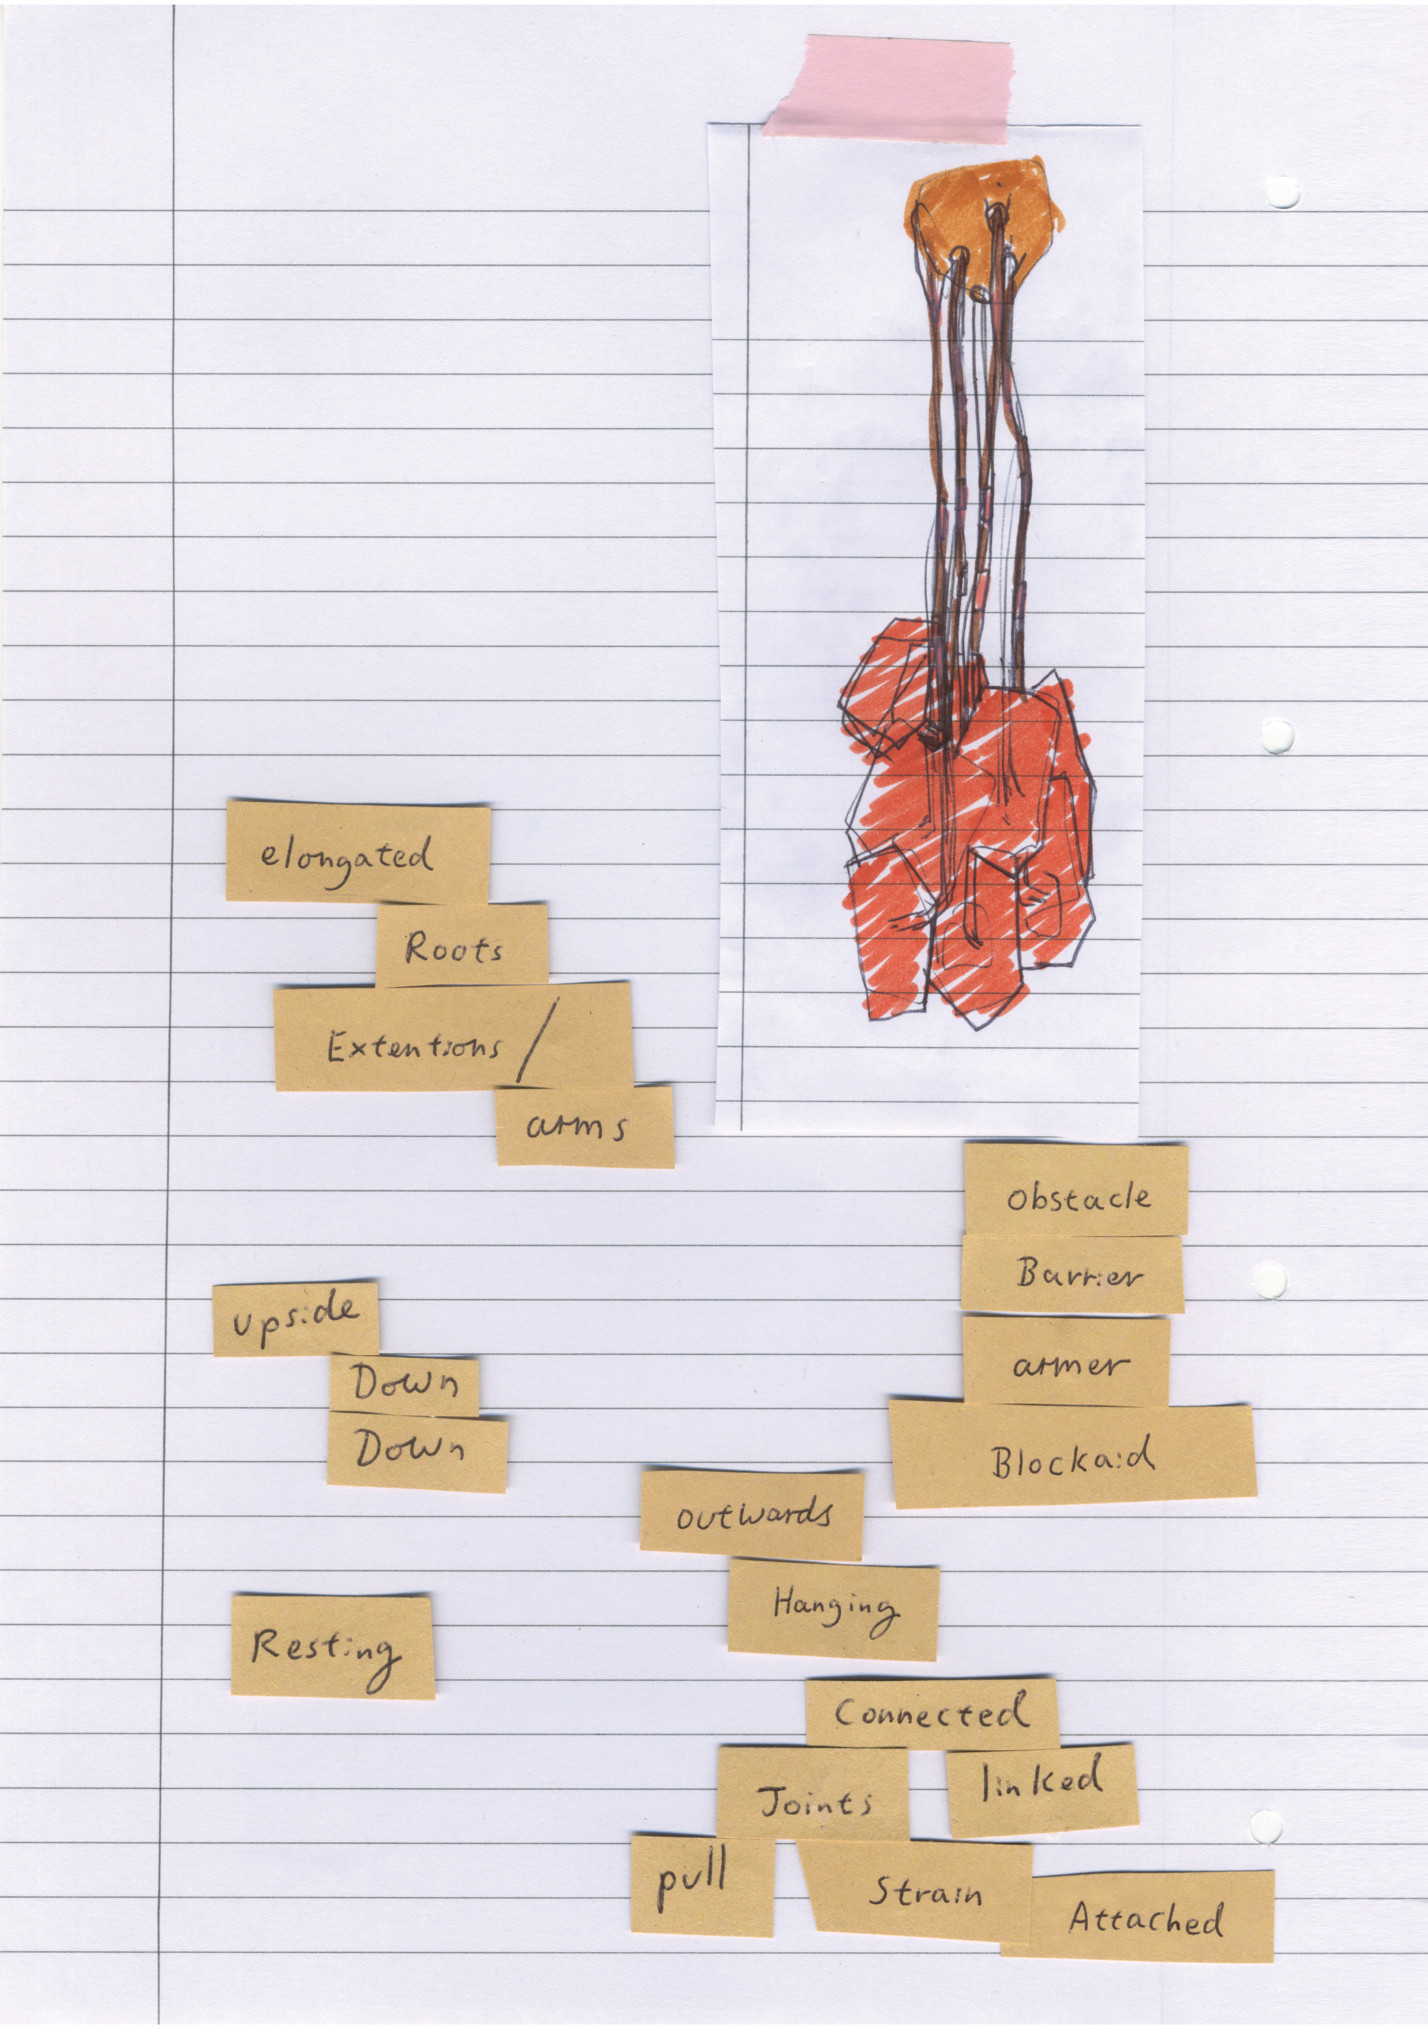 elongated
Roots
Extentions /
arms
obstacle
Barrier
armer
Blockaid
upside
Down
Down
outwards
Hanging
Resting
Connected
Joints
linked
pull
Strain
Attached